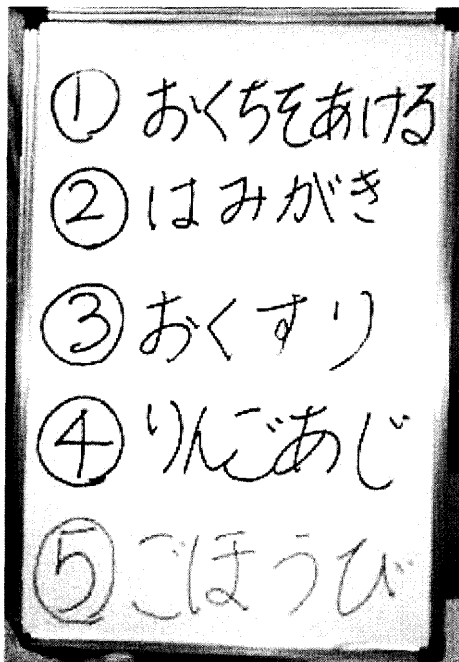 ① おくちをあける
② はみがき
③ おくすり
④ りんごあじ
⑤ ごほうび